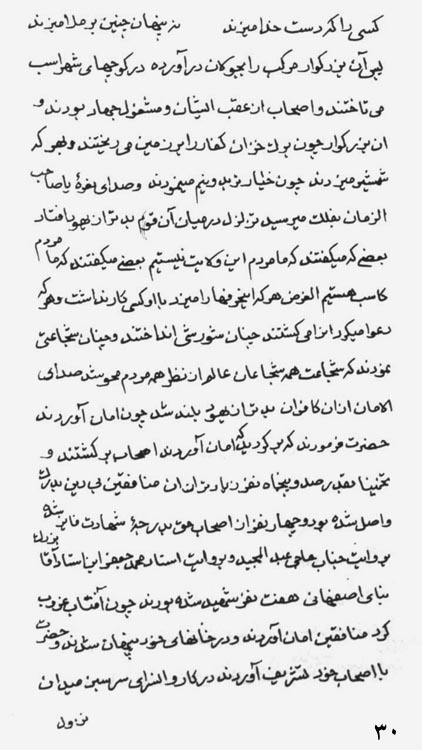 کسی را که دست خدا میزند نه پنهان چنین بر ملا میزند
پس آن بزرگوار مرکب را بجولان در آورده در کوچهای شهر اسب
می تاختند و اصحاب از عقب ایشان و مشغول جهاد بودند و
ان بزرگوار چون برك خزان کفار را بر زمین می ریختند و بهر که
شمشیر میزدند چون خیار تر بدو نیم مینمودند و صدای نعرهٔ یا صاحب
الزمان بفلك میرسید تزلزل در میان آن قوم بدتر از یهود افتاد
بعضی که میکفتند که ما مردم این ولایت نیستیم بعضی میکفتند که ما مردم
کاسب هستیم الغرض هر که اینحرفها را میزد با او کسی کار نداشت و هر که
دعوا میکرد انرا می کشتند چنان شورشی انداختند و چنان شجاعتی
نمودند که شجاعت همه شجاعان عالم از نظر همه مردم محو شد صدای
الامان از ان کافران بدتر از یهود بلند شد چون امان آوردند
حضرت فرمودند که بر کردید که امان آوردند اصحاب بر کشتند و
تخمینا بقدر صد و پنجاه نفر زیادتر از ان منافقین بی دین بدرك
واصل شده بود و چهار نفر از اصحاب حق بدرجهٔ شهادت فایز شده
بروایت جناب حاجی عبد المجید و بروایت استاد محمد جعفر ابن استاد آقا بزرك
بنای اصفهانی هفت نفر شهید شده بودند چون آفتاب غروب
کرد منافقین امان آوردند و در خانهای خود پنهان شدند و حضرت
با اصحاب خود تشریف آوردند در کاروانسرای سر سبز میدان
نزول
۳۰